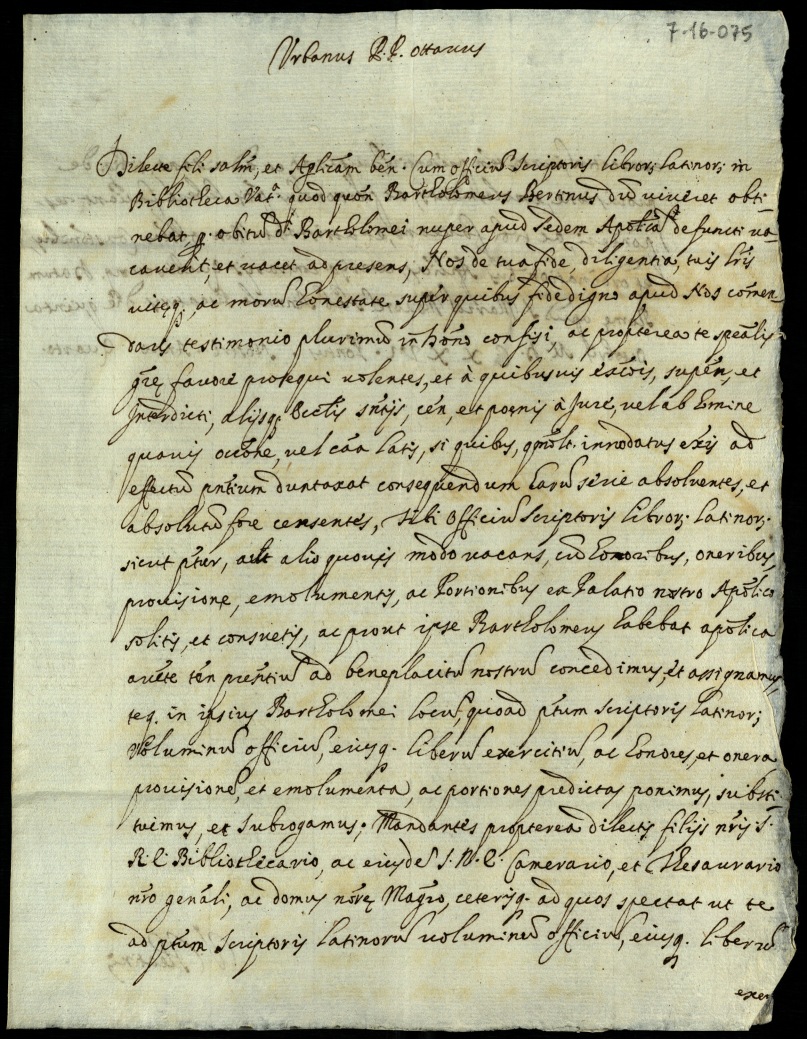 7-16-075
Urbanus P.P. ottavus
Dilecte fili salm̄, et Aplicam ben. Cum officiū Scriptoris libror; latinor; in
Bibliotheca Vatᵃ. quod quōn Bartholomeus Bertinus dū viveret obti-
nebat, p. obitū dⁱ Bartholomei nuper apud Sedem Apolicā defuncti va-
caverit, et vacet ad presens, Nos de tua fide, diligentia, tuis lr̄is
vitęq;, ac morū honestate super quibus fidedigno apud Nos comen-
daris testimonio plurimū in Dn̄o confisi, ac propterea te spealis
gr̄ę favore prosequi volentes, et à quibusvis excōis, suspen, et
Interdicti, alijsq; Eccl̄is sntijs, cen, et poenis à Jure, vel ab homine
quavis occōne, vel cāa latis, si quibus, qmōlt. innodatus exis ad
effectū pn̄tium duntaxat consequendum harū serie absolventes, et
absolutū fore censentes, tibi officiū Scriptoris libror; latinor;
sicut pr̄ter, aut alio quovis modo vacans, cū honoribus, oneribus,
provisione, emolumentis, ac Portionibus ex Palatio nostro Apolico
solitis, et consuetis, ac prout ipse Bartholomeus habebat apolica
aucte ten presentiū ad beneplacitū nostrū concedimus, et assignamus,
teq. in ipsius Bartholomei locū, quoad pr̄tum Scriptoris latinor;
Voluminū officiū, eiusq. liberū exercitiū, ac honores, et onera
provisionē, et emolumenta, ac portiones predictas ponimus, substi-
tuimus, et subrogamus; Mandantes propterea dilectis filijs nr̄is S.
R. E. Bibliothecario, ac eiusdē S. R. E. Camerario, et Thesaurario
nr̄o genāli, ac domus nr̄ę Magr̄o, ceterisq. ad quos spectat ut te
ad pr̄tum Scriptoris latinorū voluminū officiū, eiusq. liberū
exer